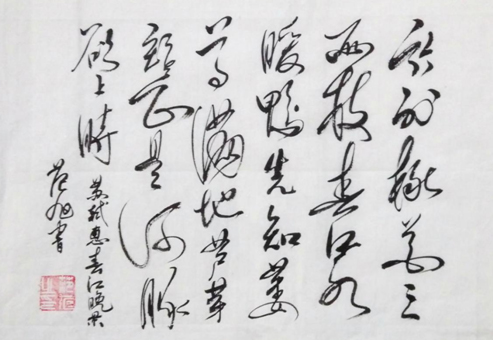 竹外桃花三
两枝春江水
暖鸭先知蒌
蒿满地芦芽
短正是河豚
欲上时
苏轼惠春江晚景
范旭書